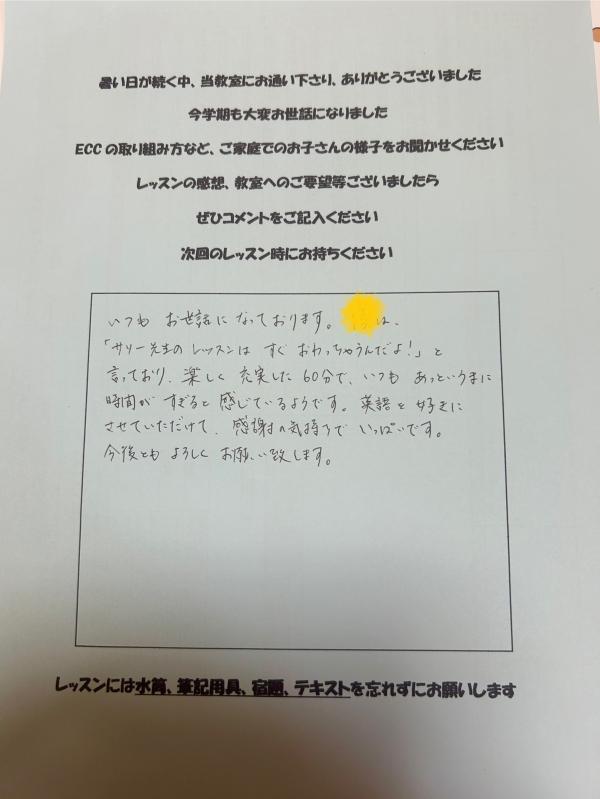 暑い日が続く中、当教室にお通い下さり、ありがとうございました
今学期も大変お世話になりました
ECCの取り組み方など、ご家庭でのお子さんの様子をお聞かせください
レッスンの感想、教室へのご要望等ございましたら
ぜひコメントをご記入ください
次回のレッスン時にお持ちください
いつも お世話に なっております。 は、
「サリー先生の レッスンは すぐ おわっちゃうんだよ!」と
言っており、楽しく 充実した 60分で、いつも あっというまに
時間が すぎると 感じているようです。英語を好きに
させていただけて、感謝の気持ちで いっぱいです。
今後とも よろしく お願い致します。
レッスンには水筒、筆記用具、宿題、テキストを忘れずにお願いします